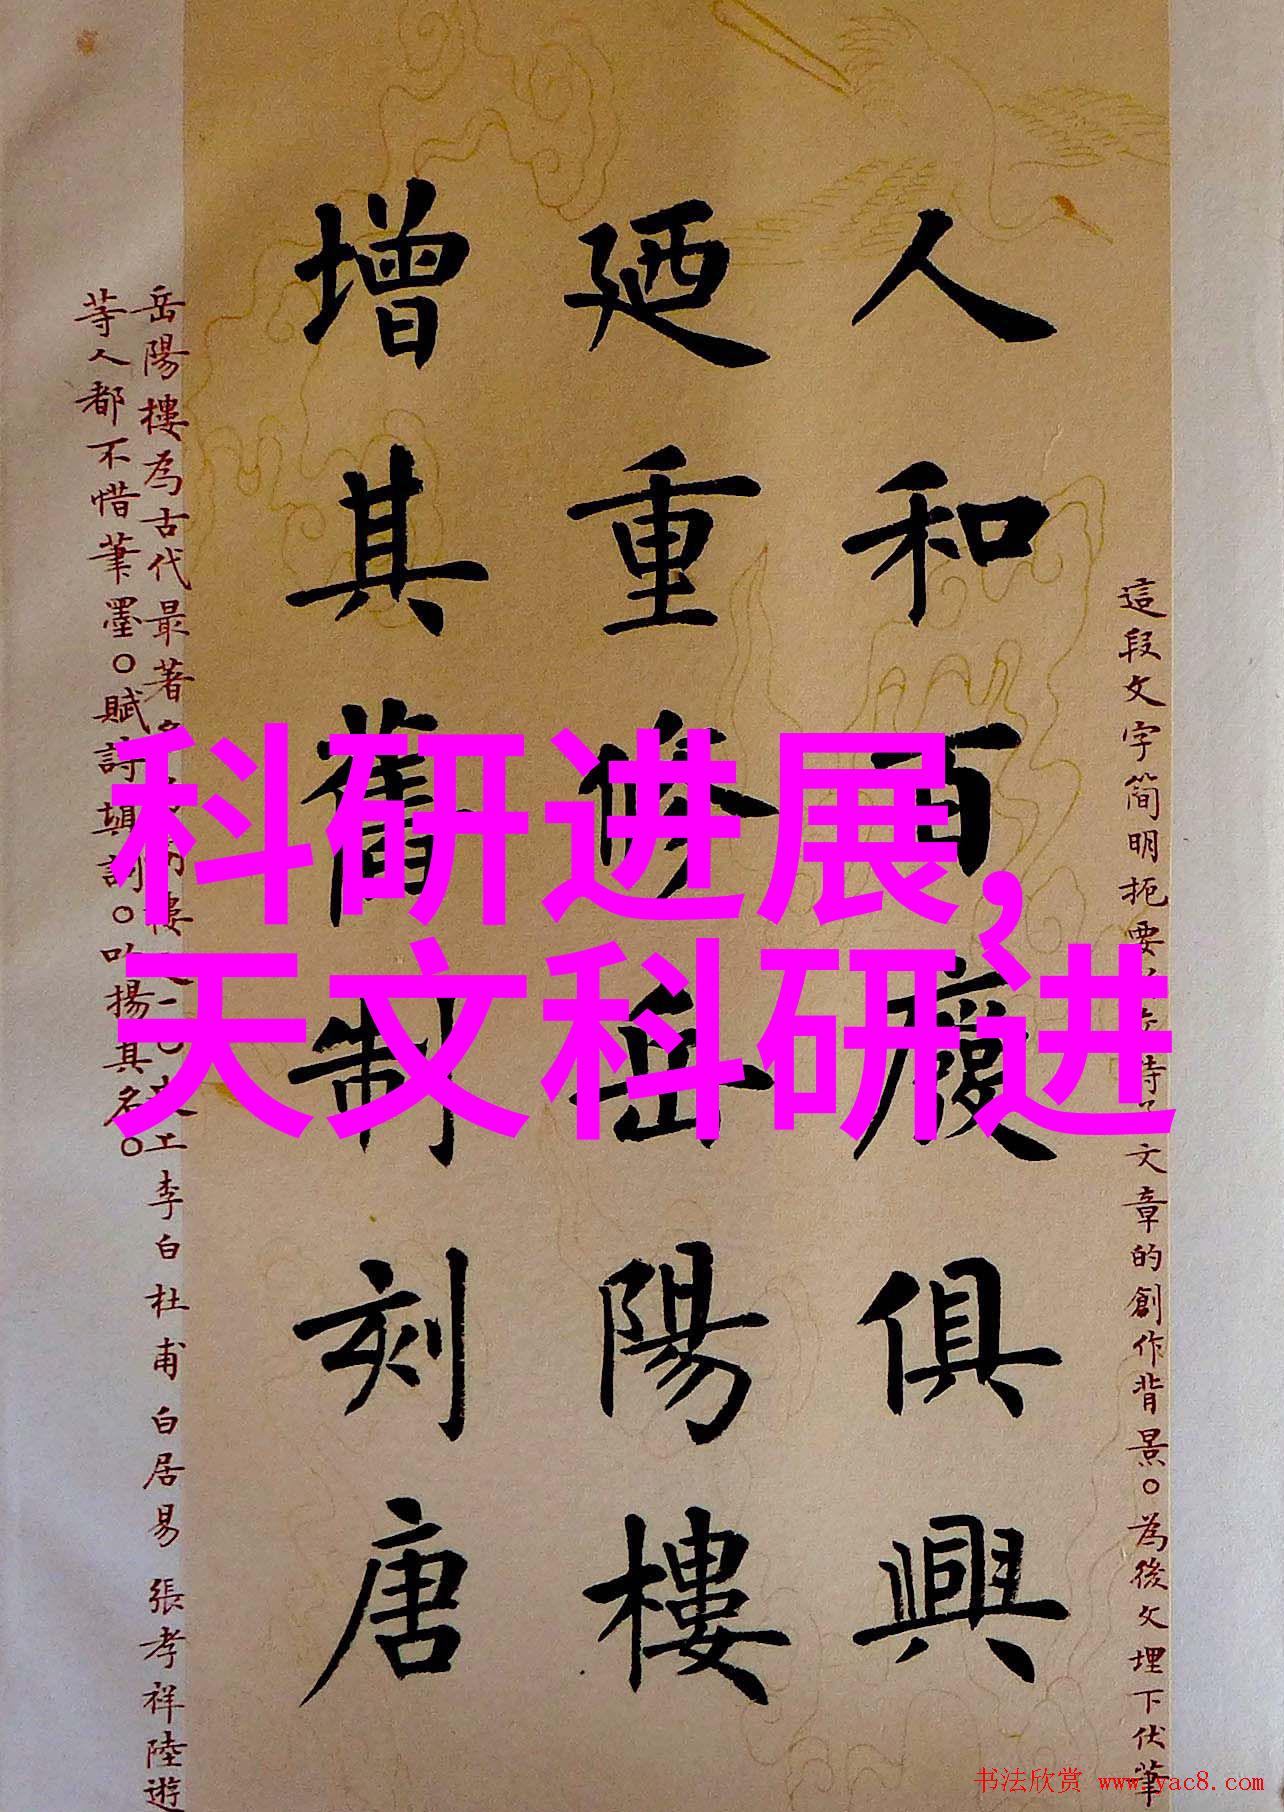 科研进展,
天文科研进
這段文字简明扼要文章的創作背景。為後文埋下伏筆
人和百廢俱興
廼重修岳陽樓
增其舊制刻唐
岳陽樓為古代最著樓一。李白杜甫白居易張孝祥陸遊
等人都不惜筆墨。賦詩填詞。吟揚其名。
书法欣赏 www.yac8.com